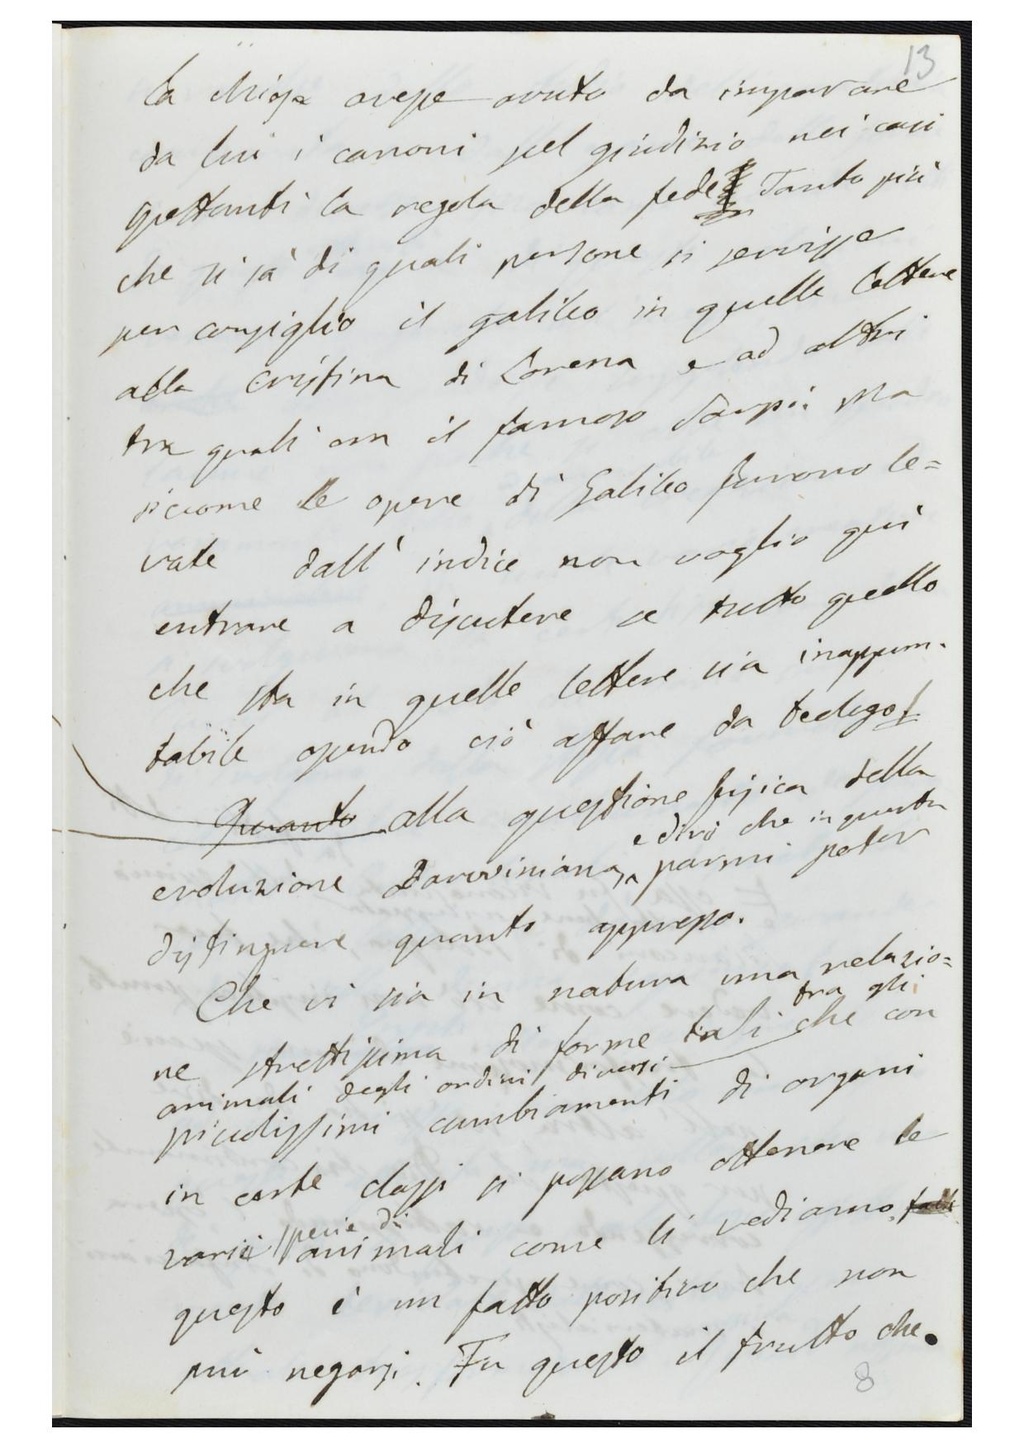 13
la Chiesa avesse avuto da imparare
da lui i canoni pel giudizio nei casi
spettanti la regola della fede. Tanto più
che si sà di quali persone si servisse
per consiglio il Galileo in quelle lettere
alla Cristina di Lorena e ad altri
tra quali era il famoso Sarpi: Ma
siccome le opere di Galileo furono le=
vate dall' indice non voglio quì
entrare a discutere se tutto quello
che sta in quelle lettere sia inappun-
tabile essendo ciò affare da teologo.
Quanto alla questione fisica della
evoluzione Darwiniana, e dirò che in questa parmi poter
distinguere quanto appresso.
Che vi sia in natura una relazio=
ne strettissima di forme tali tra gli
animali degli ordini diversi che con
picolissimi cambiamenti di organi
in certe classi si possano ottenere le
varie specie di animali come li vediamo,
questo è un fatto positivo che non
può negarsi. Fu questo il frutto che
8